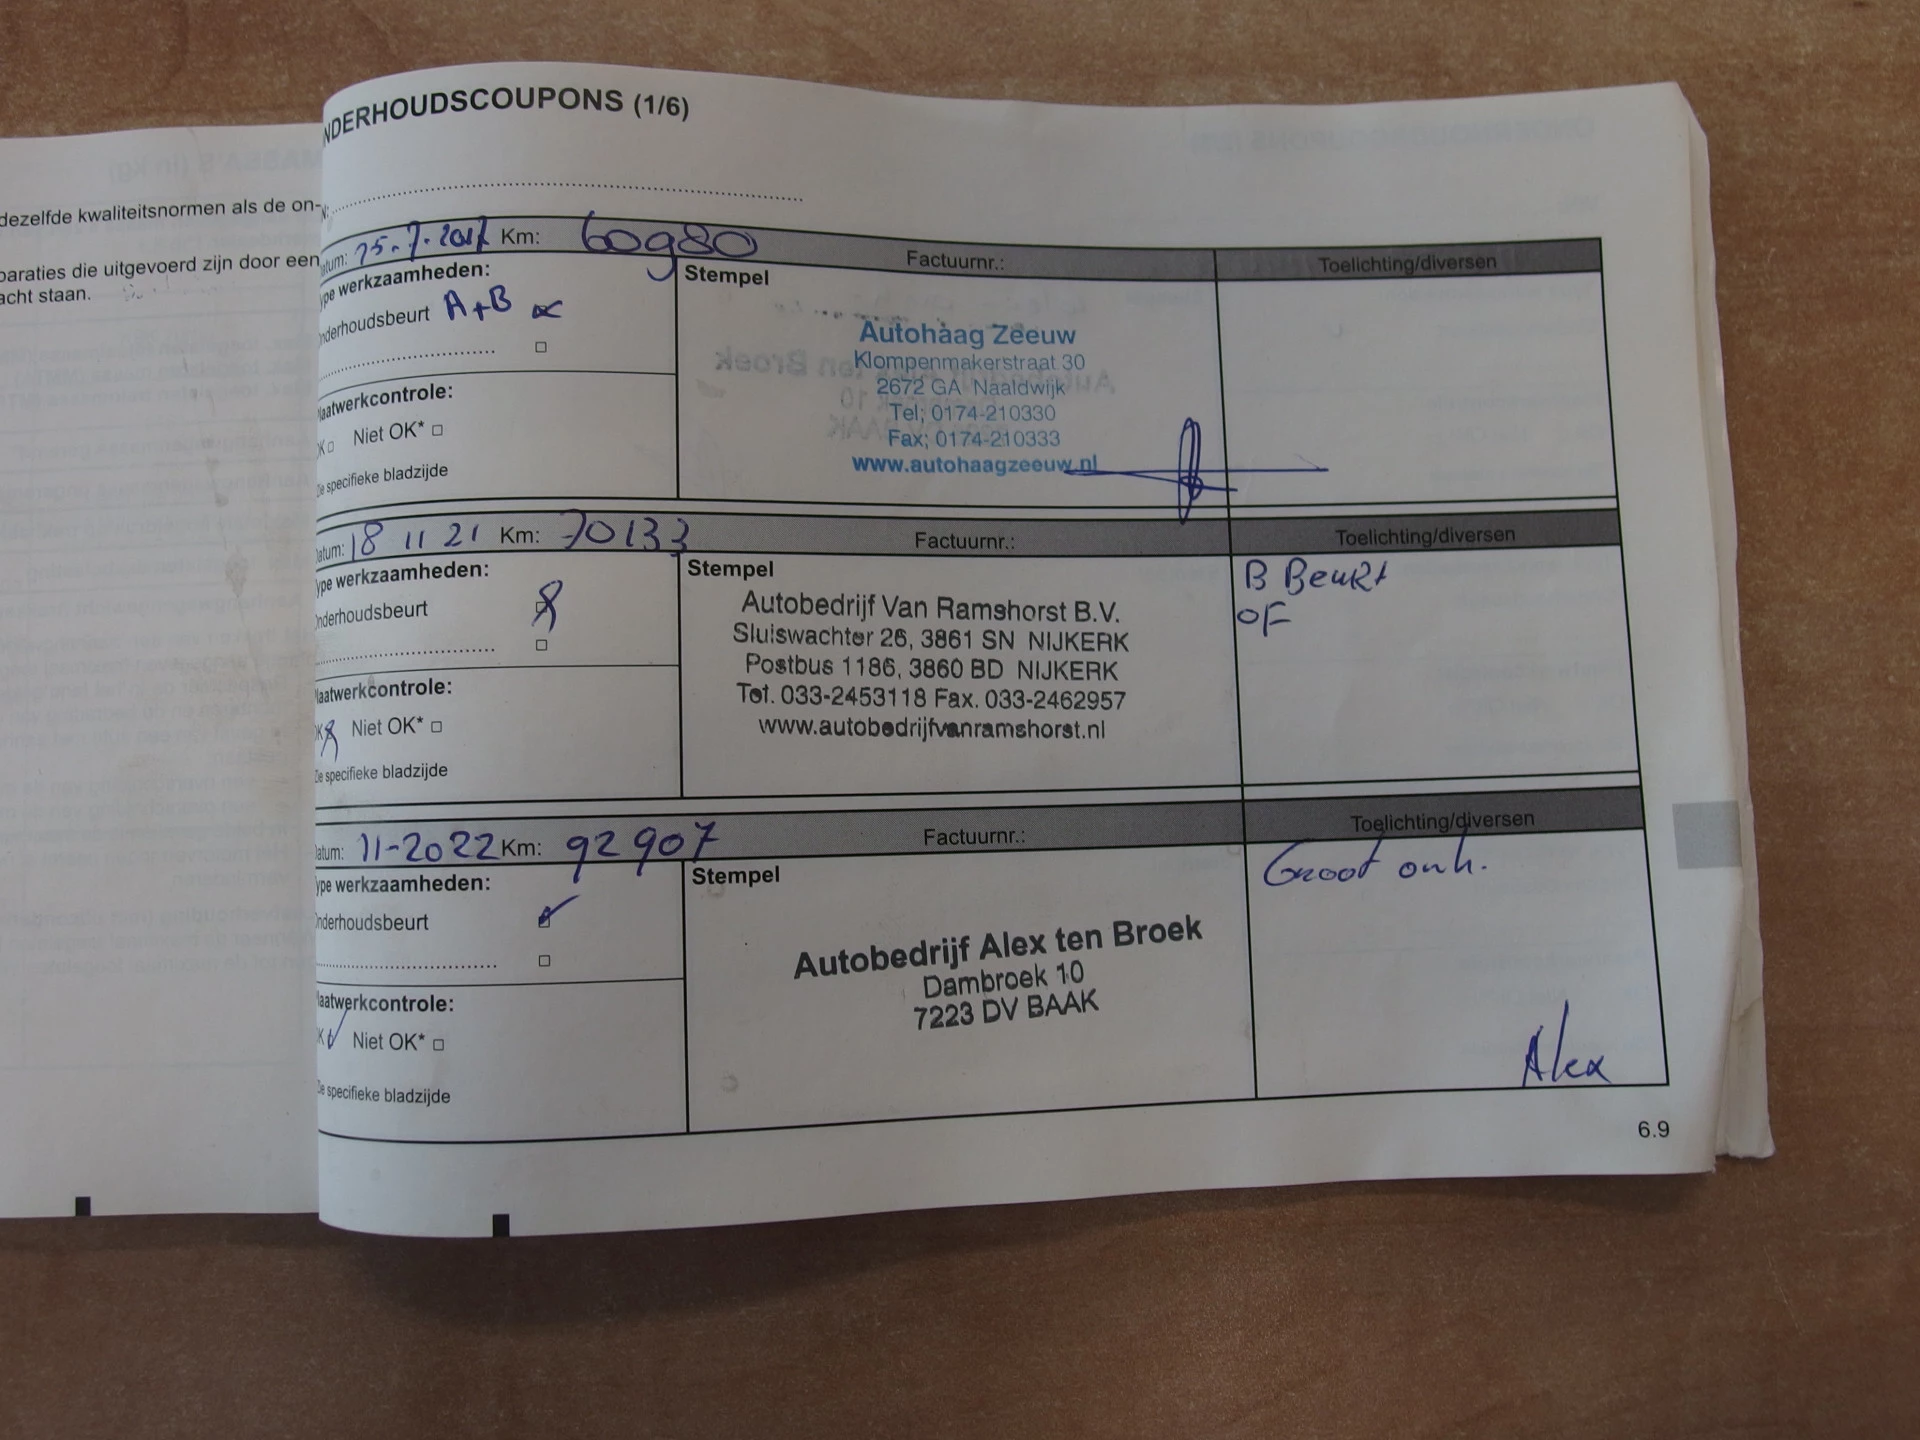 dezelfde kwaliteitsnormen als de on-
paraties die uitgevoerd zijn door een
acht staan.
NDERHOUDSCOUPONS (1/6)
N:
atum: 25-7-2017 Km: 60980 Factuurnr.: Toelichting/diversen
ype werkzaamheden:
nderhoudsbeurt A+B
laatwerkcontrole:
K Niet OK*
ie specifieke bladzijde
Stempel
Autohaag Zeeuw
Klompenmakerstraat 30
2672 GA Naaldwijk
Tel; 0174-210330
Fax; 0174-210333
www.autohaagzeeuw.nl
atum: 18 11 21 Km: 70133 Factuurnr.: Toelichting/diversen
ype werkzaamheden:
nderhoudsbeurt
laatwerkcontrole:
K Niet OK*
ie specifieke bladzijde
Stempel
Autobedrijf Van Ramshorst B.V.
Sluiswachter 26, 3861 SN NIJKERK
Postbus 1186, 3860 BD NIJKERK
Tel. 033-2453118 Fax. 033-2462957
www.autobedrijfvanramshorst.nl
B Beurt
OF
atum: 11-2022 Km: 92907 Factuurnr.: Toelichting/diversen
ype werkzaamheden:
nderhoudsbeurt
laatwerkcontrole:
K Niet OK*
ie specifieke bladzijde
Stempel
Autobedrijf Alex ten Broek
Dambroek 10
7223 DV BAAK
Groot onh.
Alex
6.9